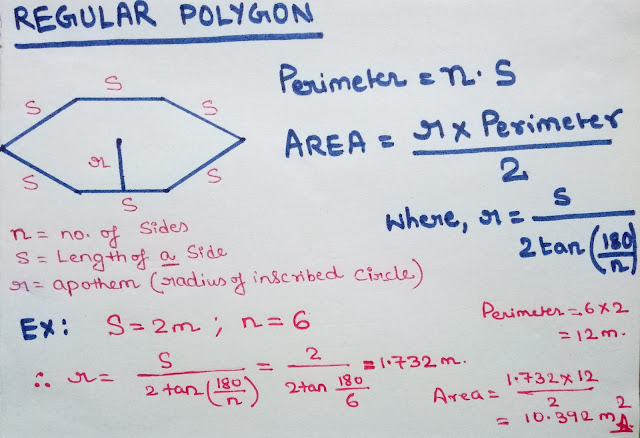 REGULAR POLYGON
S
S
S
r
S
S
S
Perimeter = n · S
AREA = r x Perimeter / 2
where, r = S / 2 tan (180/n)
n = no. of Sides
S = Length of a Side
r = apothem (radius of inscribed circle)
Ex: S = 2m ; n = 6
∴ r = S / 2 tan (180/n) = 2 / 2 tan 180/6 = 1.732 m.
Perimeter = 6 x 2
= 12 m.
Area = 1.732 x 12 / 2
= 10.392 m²